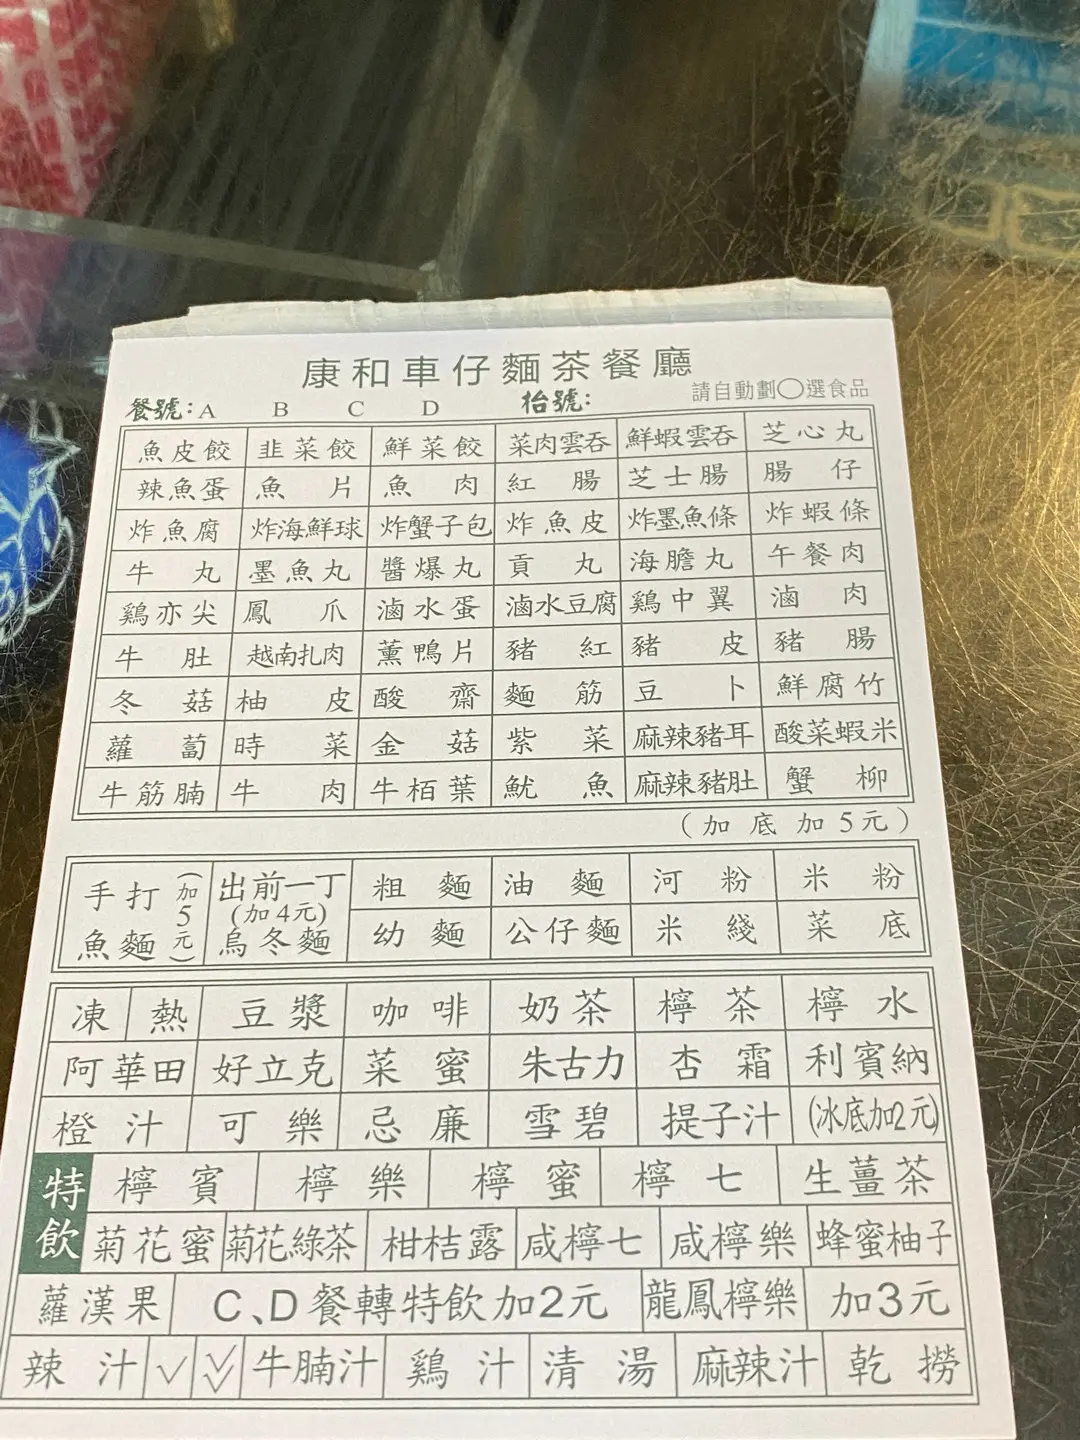 康和車仔麵茶餐廳
餐號:A B C D 枱號: 請自動劃○選食品
魚皮餃 韭菜餃 鮮菜餃 菜肉雲吞 鮮蝦雲吞 芝心丸
辣魚蛋 魚片 魚肉 紅腸 芝士腸 腸仔
炸魚腐 炸海鮮球 炸蟹子包 炸魚皮 炸墨魚條 炸蝦條
牛丸 墨魚丸 醬爆丸 貢丸 海膽丸 午餐肉
鷄亦尖 鳳爪 滷水蛋 滷水豆腐 鷄中翼 滷肉
牛肚 越南扎肉 薰鴨片 豬紅 豬皮 豬腸
冬菇 柚皮 酸齋 麵筋 豆卜 鮮腐竹
蘿蔔 時菜 金菇 紫菜 麻辣豬耳 酸菜蝦米
牛筋腩 牛肉 牛栢葉 魷魚 麻辣豬肚 蟹柳
(加底加5元)
手打魚麵(加5元) 出前一丁(加4元)烏冬麵 粗麵 油麵 河粉 米粉
幼麵 公仔麵 米綫 菜底
凍 熱 豆漿 咖啡 奶茶 檸茶 檸水
阿華田 好立克 菜蜜 朱古力 杏霜 利賓納
橙汁 可樂 忌廉 雪碧 提子汁 (冰底加2元)
特飲 檸賓 檸樂 檸蜜 檸七 生薑茶
菊花蜜 菊花綠茶 柑桔露 咸檸七 咸檸樂 蜂蜜柚子
蘿漢果 C、D餐轉特飲加2元 龍鳳檸樂 加3元
辣汁 ✓ ✓✓ 牛腩汁 鷄汁 清湯 麻辣汁 乾撈